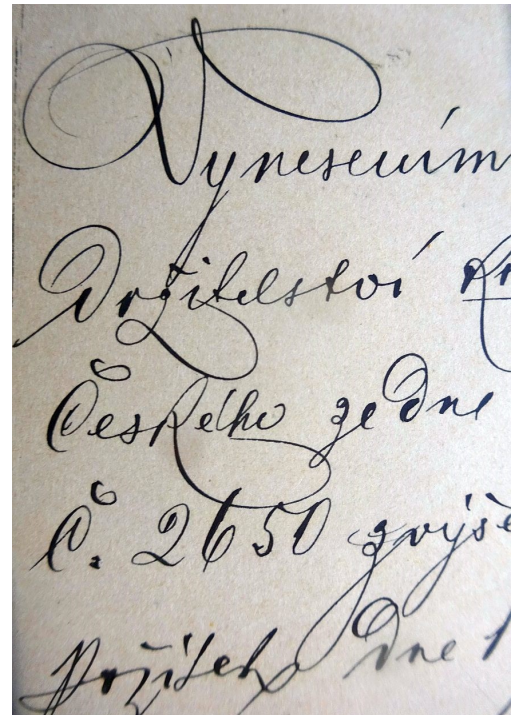 Vynesením
Držitelství
Českého ze dne
Č. 2650 zvýše
Požitek dne 1